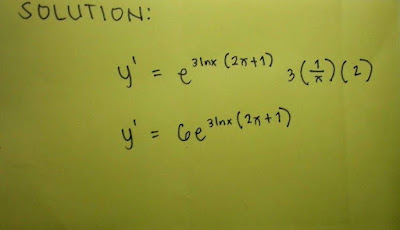 SOLUTION:
y' = e^{3lnx (2x+1)} 3(1/x)(2)
y' = 6e^{3lnx (2x+1)}